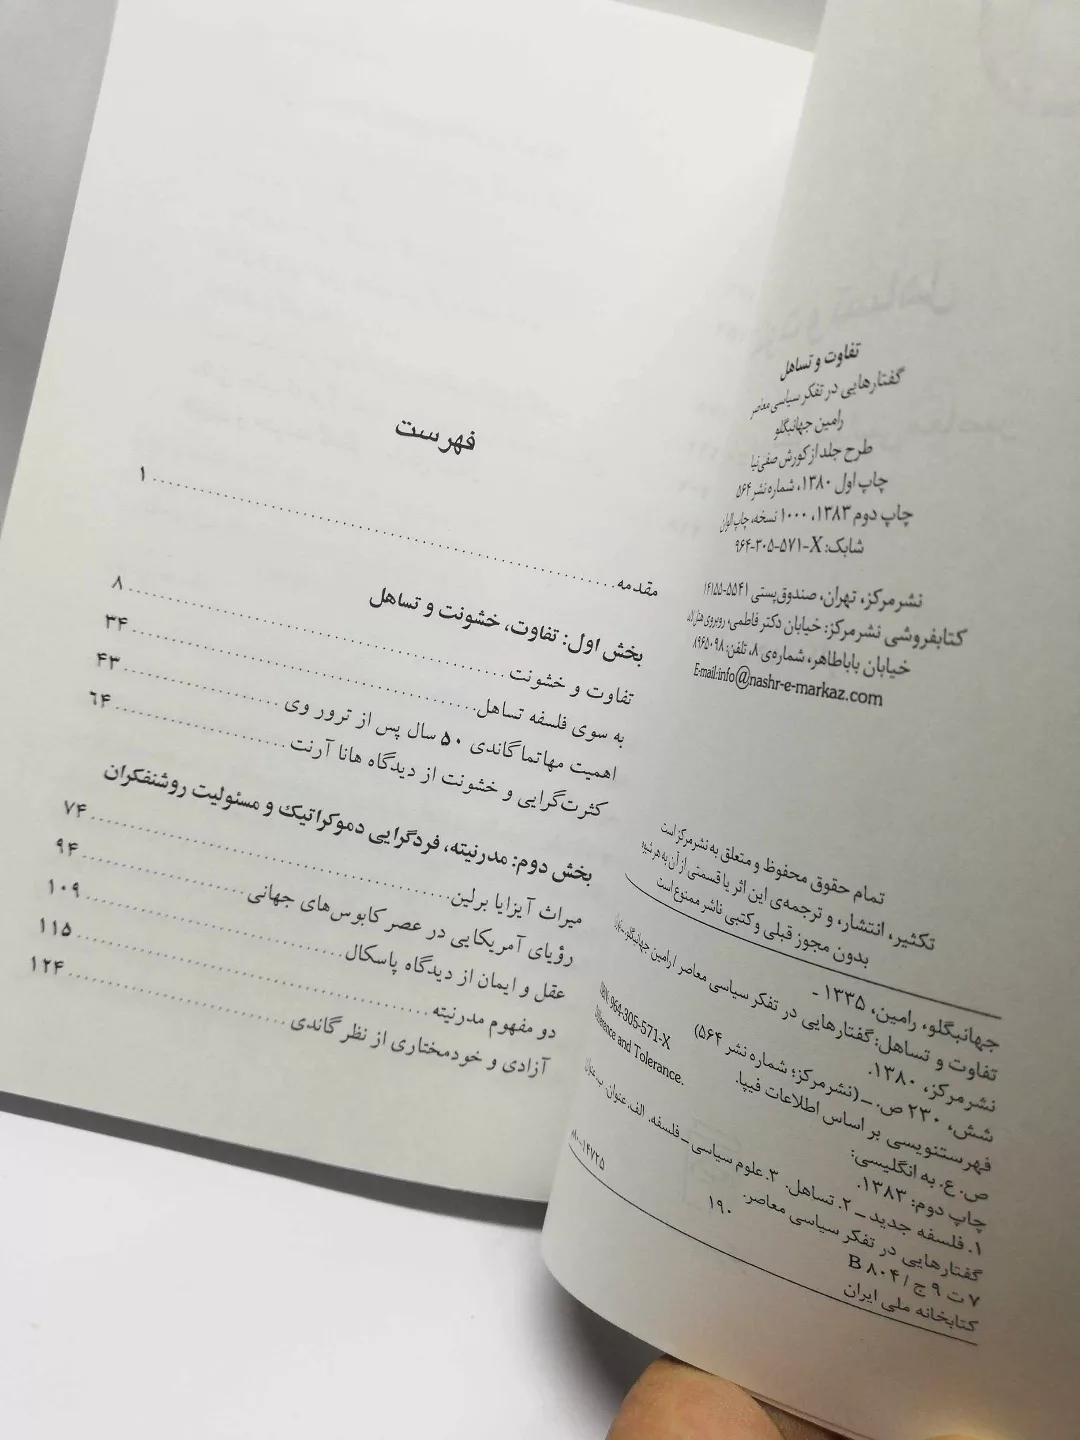 تفاوت و تساهل
گفتارهایی در تفکر سیاسی معاصر
رامین جهانبگلو
طرح جلد از کورش صفی‌نیا
چاپ اول ۱۳۸۰، شماره نشر ۵۶۴
چاپ دوم ۱۳۸۳، ۱۰۰۰ نسخه، چاپ الوان
شابک: X-۵۷۱-۳۰۵-۹۶۴
نشرمرکز، تهران، صندوق‌پستی ۵۵۴۱-۱۴۱۵۵
کتابفروشی نشرمرکز: خیابان دکتر فاطمی، روبروی هتل لاله
خیابان باباطاهر، شماره‌ی ۸، تلفن: ۸۹۶۵۰۹۸
E-mail:info@nashr-e-markaz.com
تمام حقوق محفوظ و متعلق به نشرمرکز است
تکثیر، انتشار، و ترجمه‌ی این اثر یا قسمتی از آن به هر شیوه
بدون مجوز قبلی و کتبی ناشر ممنوع است
جهانبگلو، رامین، ۱۳۳۵ -
تفاوت و تساهل: گفتارهایی در تفکر سیاسی معاصر / رامین جهانبگلو.
نشرمرکز، ۱۳۸۰.
شش، ۲۳۰ ص. ــ (نشرمرکز؛ شماره نشر ۵۶۴)
ISBN: 964-305-571-X
فهرستنویسی بر اساس اطلاعات فیپا.
ص. ع. به انگلیسی:
Difference and Tolerance.
چاپ دوم: ۱۳۸۳.
۱. فلسفه جدید ــ ۲. تساهل. ۳. علوم سیاسی ــ فلسفه. الف. عنوان. ب. عنوان
گفتارهایی در تفکر سیاسی معاصر.
۷ ت ۹ ج / B ۸۰۴
۱۹۰
کتابخانه ملی ایران
۸۰-۱۴۷۲۵
فهرست
مقدمه ۱
بخش اول: تفاوت، خشونت و تساهل
تفاوت و خشونت ۸
به سوی فلسفه تساهل ۳۴
اهمیت مهاتما گاندی ۵۰ سال پس از ترور وی ۴۳
کثرت‌گرایی و خشونت از دیدگاه هانا آرنت ۶۴
بخش دوم: مدرنیته، فردگرایی دموکراتیک و مسئولیت روشنفکران
میراث آیزایا برلین ۷۴
رؤیای آمریکایی در عصر کابوس‌های جهانی ۹۴
عقل و ایمان از دیدگاه پاسکال ۱۰۹
دو مفهوم مدرنیته ۱۱۵
آزادی و خودمختاری از نظر گاندی ۱۲۴